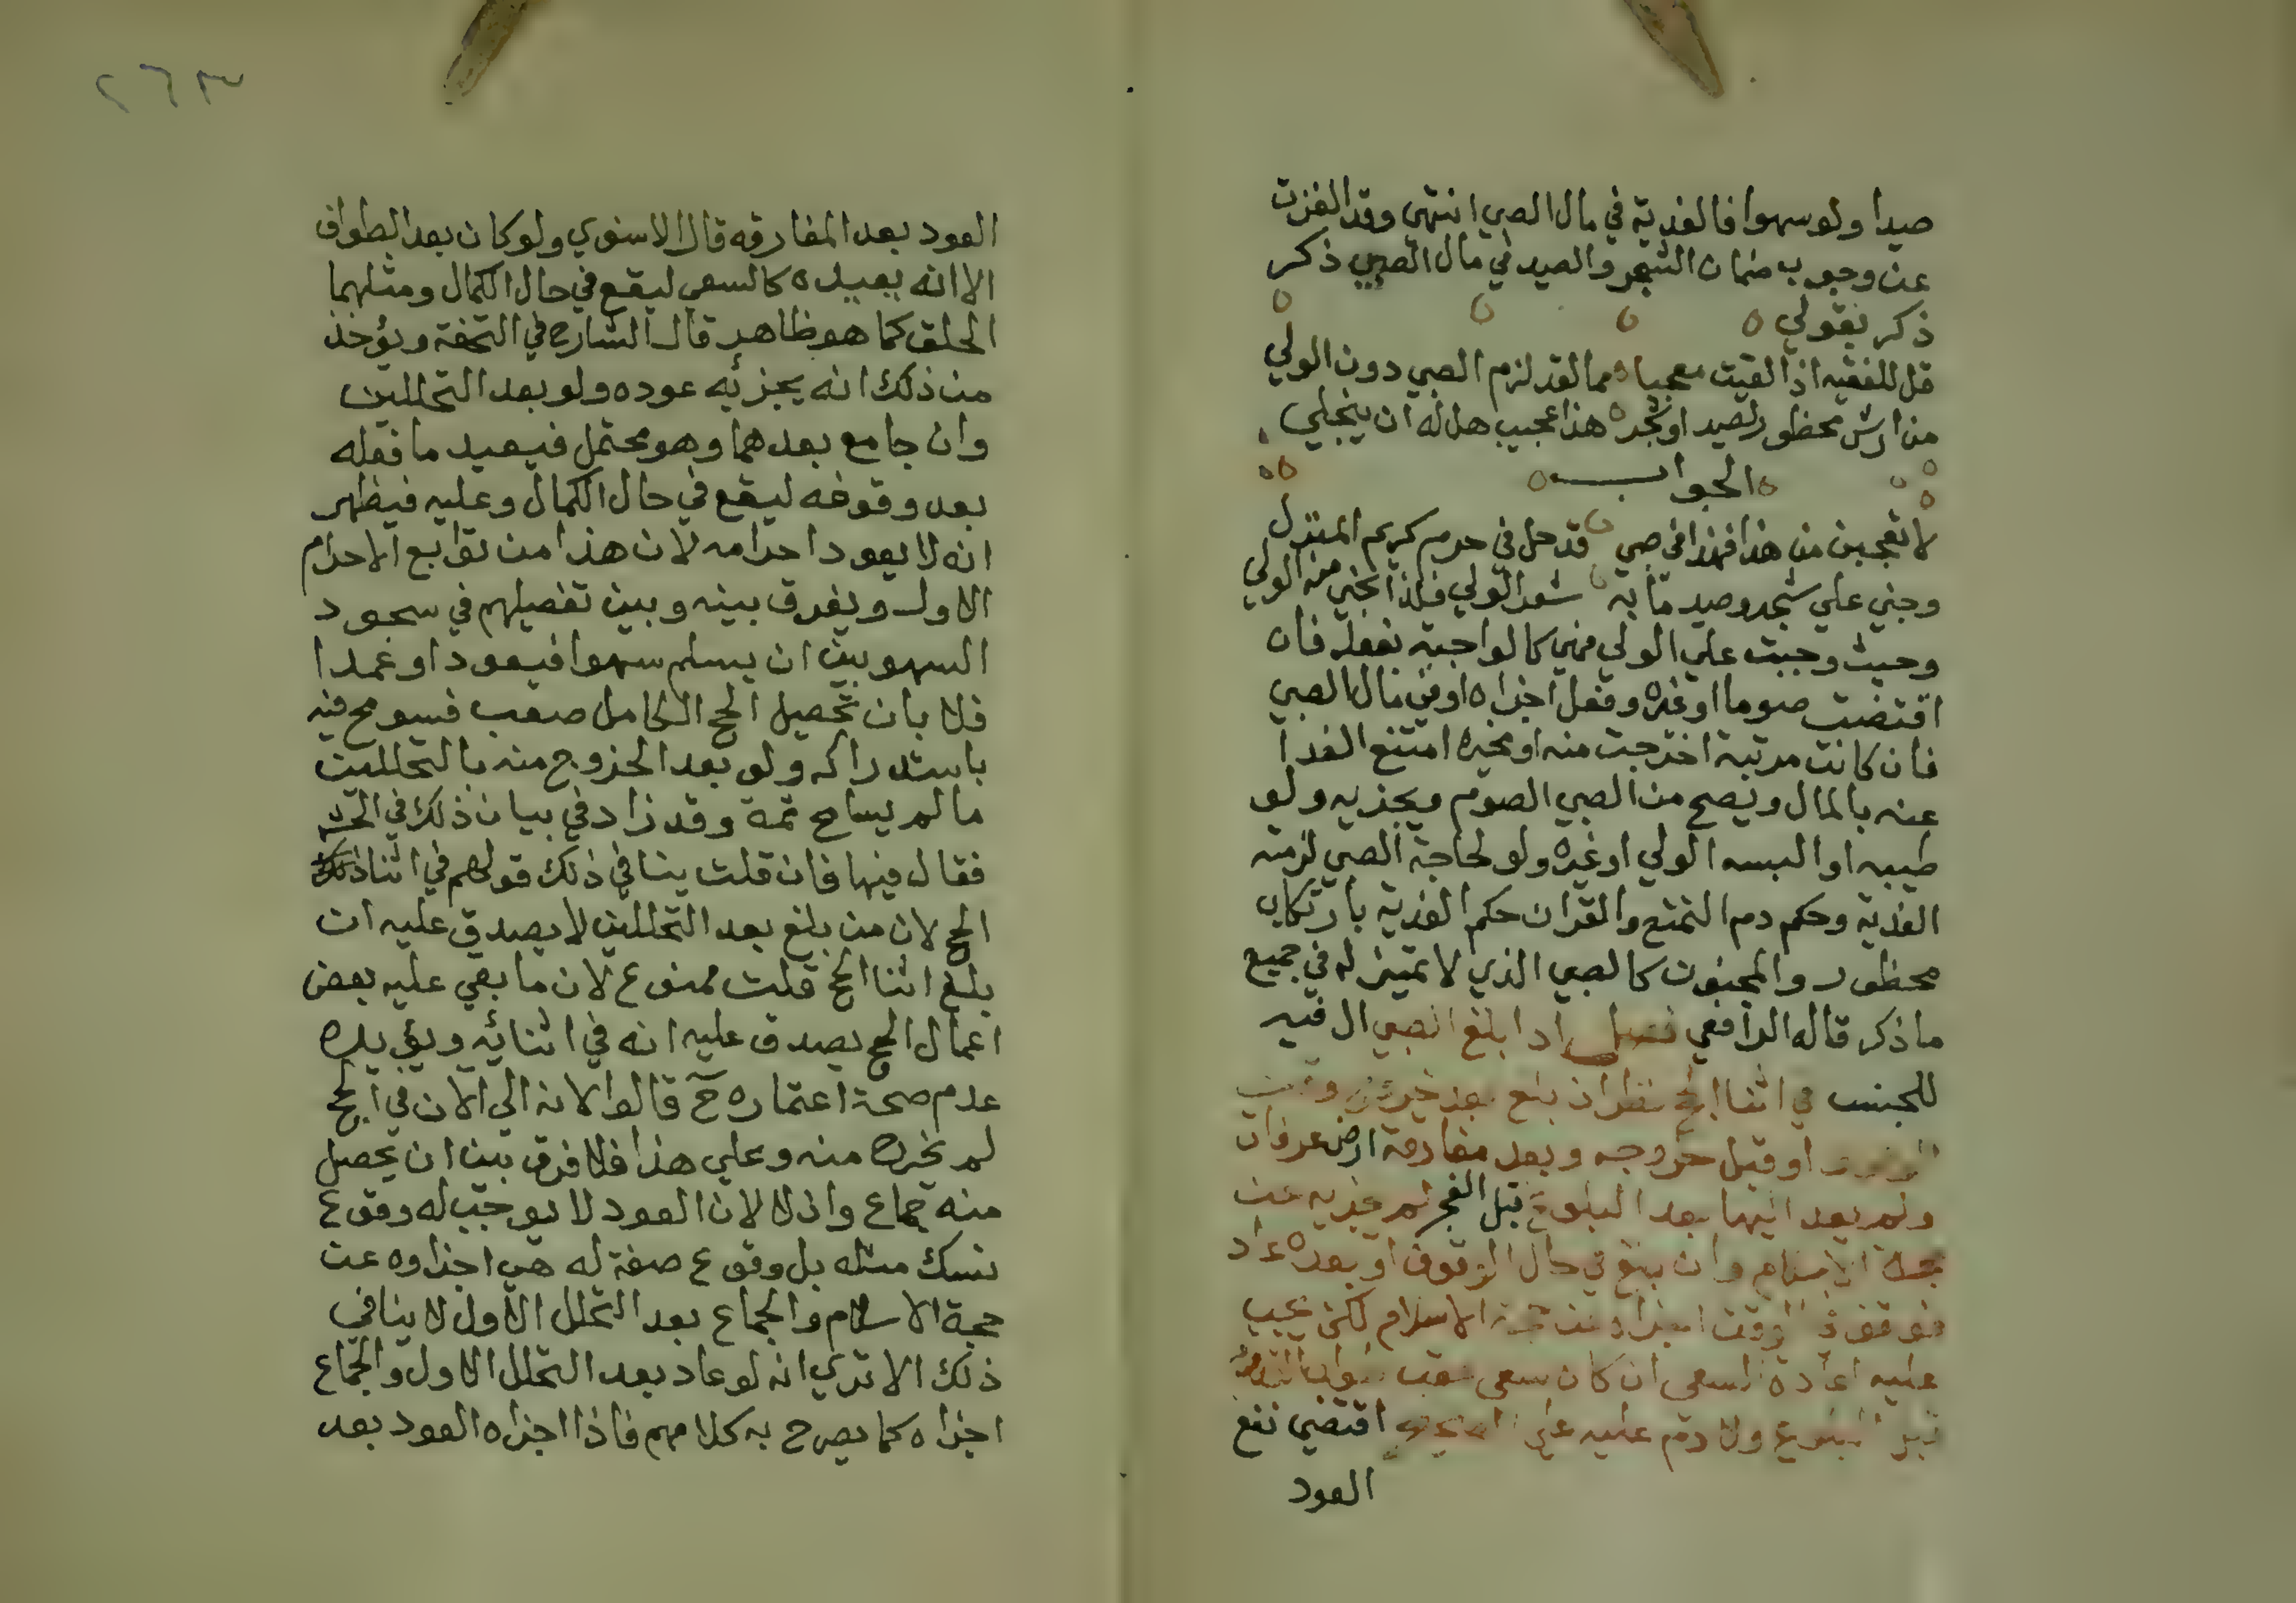 صيدا ولو سهوا فالفدية في مال الصبي انتهي وقد الغزت
عن وجوب ضمان الشجر والصيد في مال الصبي ذكر
ذكر بقولي
قل للفقيه اذا لقيت معجبا مما لقد لزم الصبي دون الولي
من ارش محظور لصيد او شجر هذا عجيب هل له ان ينجلي
الجواب
لا تعجبن من هذا فهذا في صبي قد حل في حرم كريم المنزل
وجني علي شجر وصيد ما به شعر الولي فلذا نجي منه الولي
وحيث وجبت علي الولي فهي كالواجبة بفعله فان
اقتضت صوما او غيره وفعل اجزاه او في مال الصبي
فان كانت مرتبة اخرجت منه او مخيره امتنع الفدا
عنه بالمال ويصح من الصبي الصوم ويجزيه ولو
طيبه او البسه الولي او غيره ولو لحاجة الصبي لزمته
الفدية وحكم دم التمتع والقران حكم الفدية بارتكاب
محظور والمجنون كالصبي الذي لا تمييز له في جميع
ما ذكر قاله الرافعي فصل اذا بلغ الصبي ال فيه
للجنس في اثنا الحج نظر ان بلغ بعد خروج وقت
الوقوف او قبل خروجه وبعد مفارقة ارض عرفات
ولم يعد اليها بعد البلوغ قبل الفجر لم يجزيه عن
حجة الاسلام وان بلغ في حال الوقوف او بعده عاد
فوقف في الوقت اجزاه عن حجة الاسلام لكن يجب
عليه اعادة السعي ان كان سعي عقب طواف القدوم
قبل البلوغ ولا دم عليه علي اقتضي نفع
العود
٢٦٣
العود بعد المفارقه قال الاسنوي ولو كان بعد الطواف
الا انه يعيده كالسعي ليقع في حال الكمال ومثلهما
الحلق كما هو ظاهر قال الشارح في التحفة ويؤخذ
من ذلك انه يجزئه عوده ولو بعد التحللين
وان جامع بعدهما وهو محتمل فيعيد ما فعله
بعد وقوفه ليقع في حال الكمال وعليه فيظهر
انه لا يعود احرامه لان هذا من توابع الاحرام
الاول ويفرق بينه وبين تفصيلهم في سجود
السهو بين ان يسلم سهوا فيعود او عمدا
فلا بان تحصيل الحج الكامل صعب فسومح فيه
باستدراكه ولو بعد الخروج منه بالتحللين
ما لم يسامح ثمة وقد زاد في بيان ذلك في
فقال فيها فان قلت ينافي ذلك قولهم في اثنا
الحج لان من بلغ بعد التحللين لا يصدق عليه ان
بلغ اثنا الحج قلت ممنوع لان ما بقي عليه بعض
اعمال الحج يصدق عليه انه في اثنائه ويؤيده
عدم صحة اعتماره ح قالوا لانه الي الان في الحج
لم يخرج منه وعلي هذا فلا فرق بين ان يحصل
منه جماع واذ لا لان العود لا يوجب له وقوع
نسك مثله بل وقوع صفة له هي اجزاوه عن
حجة الاسلام والجماع بعد التحلل الاول لا ينافي
ذلك الا تري انه لو عاد بعد التحلل الاول والجماع
اجزاه كما يصرح به كلامهم فاذا اجزاه العود بعد